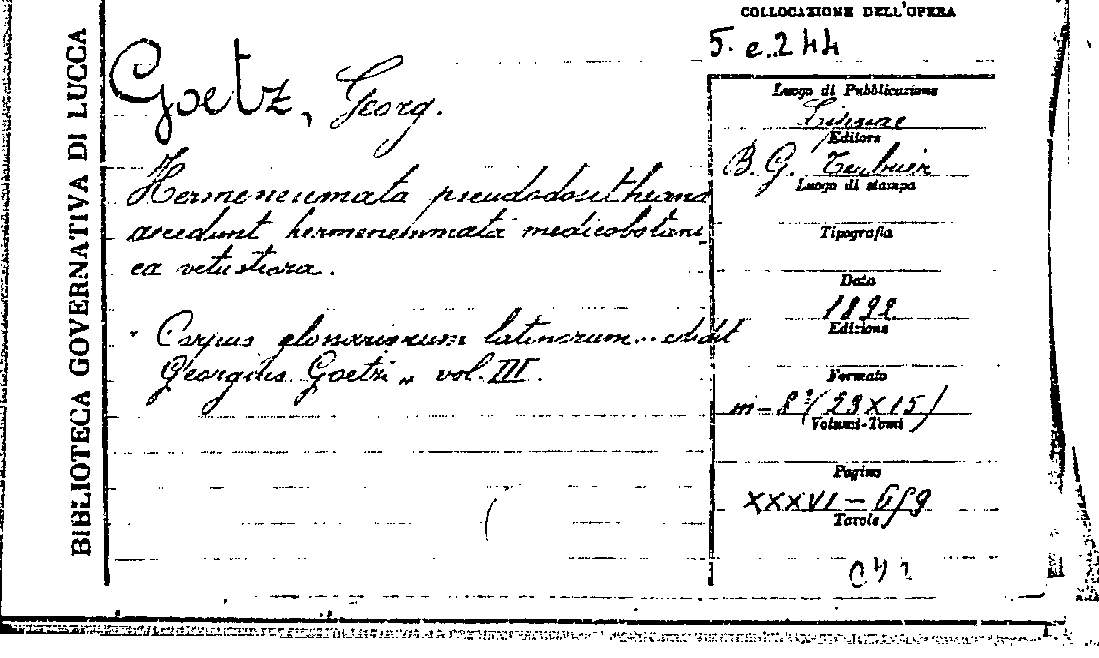 BIBLIOTECA GOVERNATIVA DI LUCCA
COLLOCAZIONE DELL'OPERA
5. e. 244
Goetz, Georg.
Hermeneumata pseudodositheana
accedunt hermeneumata medicobotani
ca vetustiora.
" Corpus glossariorum latinorum.. edidit
Georgius Goetz „ vol. III.
Luogo di Pubblicazione
Lipsiae
Editore
B. G. Teubner
Luogo di stampa
Tipografia
Data
1892
Edizione
Formato
in-8° (23X15)
Volumi-Tomi
Pagine
XXXVI - 659
Tavole